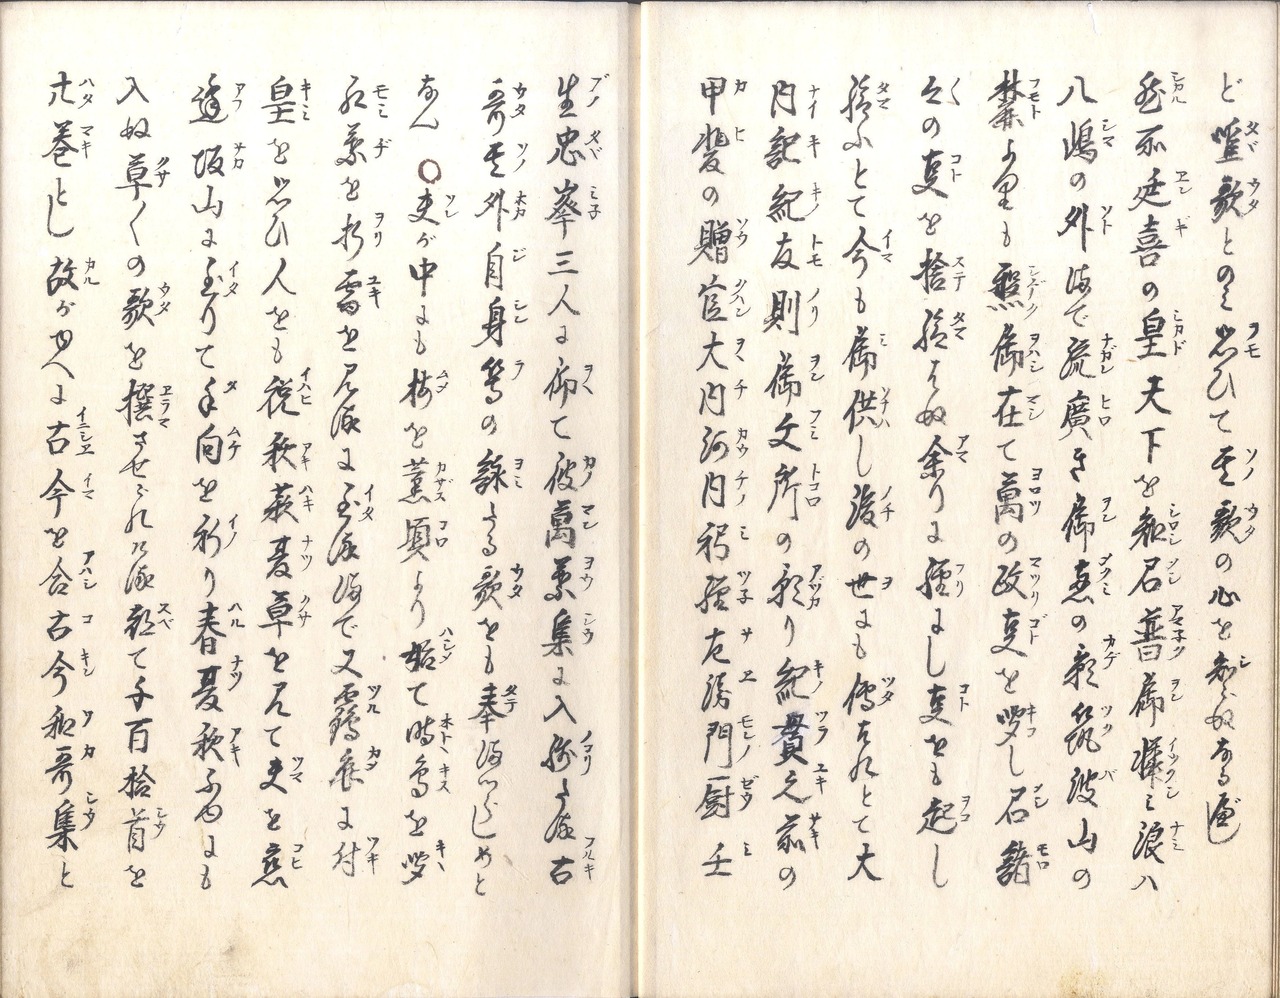 ど唯歌とのミ思ひて其歌の心を知らぬなる歟
然而延喜の皇天下を知召普御慈ミ浪ハ
八嶋の外まで流廣き御恵の影筑波山の
麓よりも繁御在て萬の政事を聞し召諸
々の事を捨給ハぬ余りに経にし事をも起し
給ふとて今も御供し後の世にも傳ハれとて大
内記紀友則御文所の預り紀貫之前の
甲斐の贈官大内河内躬経左衛門厨壬
生忠峯三人に仰て彼萬葉集に入残たる古
哥其外自身等の詠る歌をも奉ましめと
なん○夫が中にも梅を薫頃より始て時鳥を聞
紅葉を折雪を見るに至るまで又靏亀に付
皇を思ひ人をも祝秋萩夏草を見て夫を恋
逢坂山に至りて手向を祈り春夏秋冬にも
入ぬ草々の歌を撰させられける都て千百拾首を
廿巻とし故がゆへに古今を合古今和哥集と